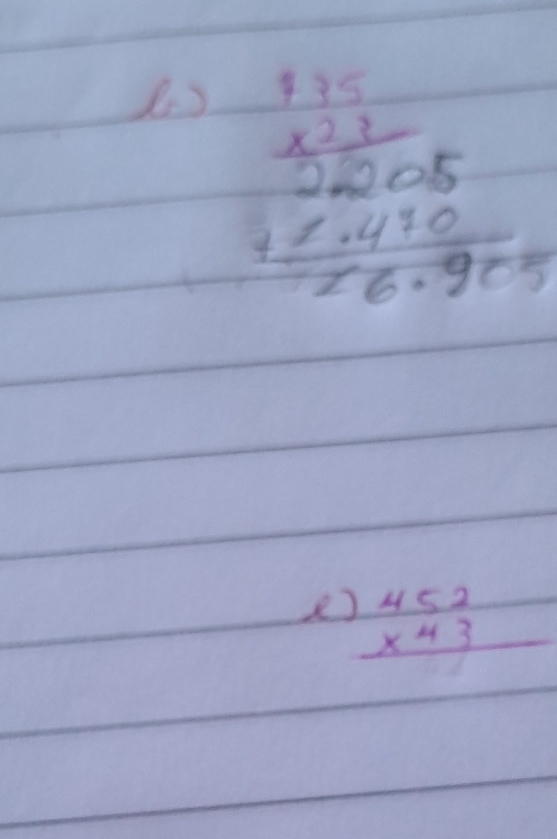 b) 735
x23
2.205
+ 1.470
16.905
e) 452
x43